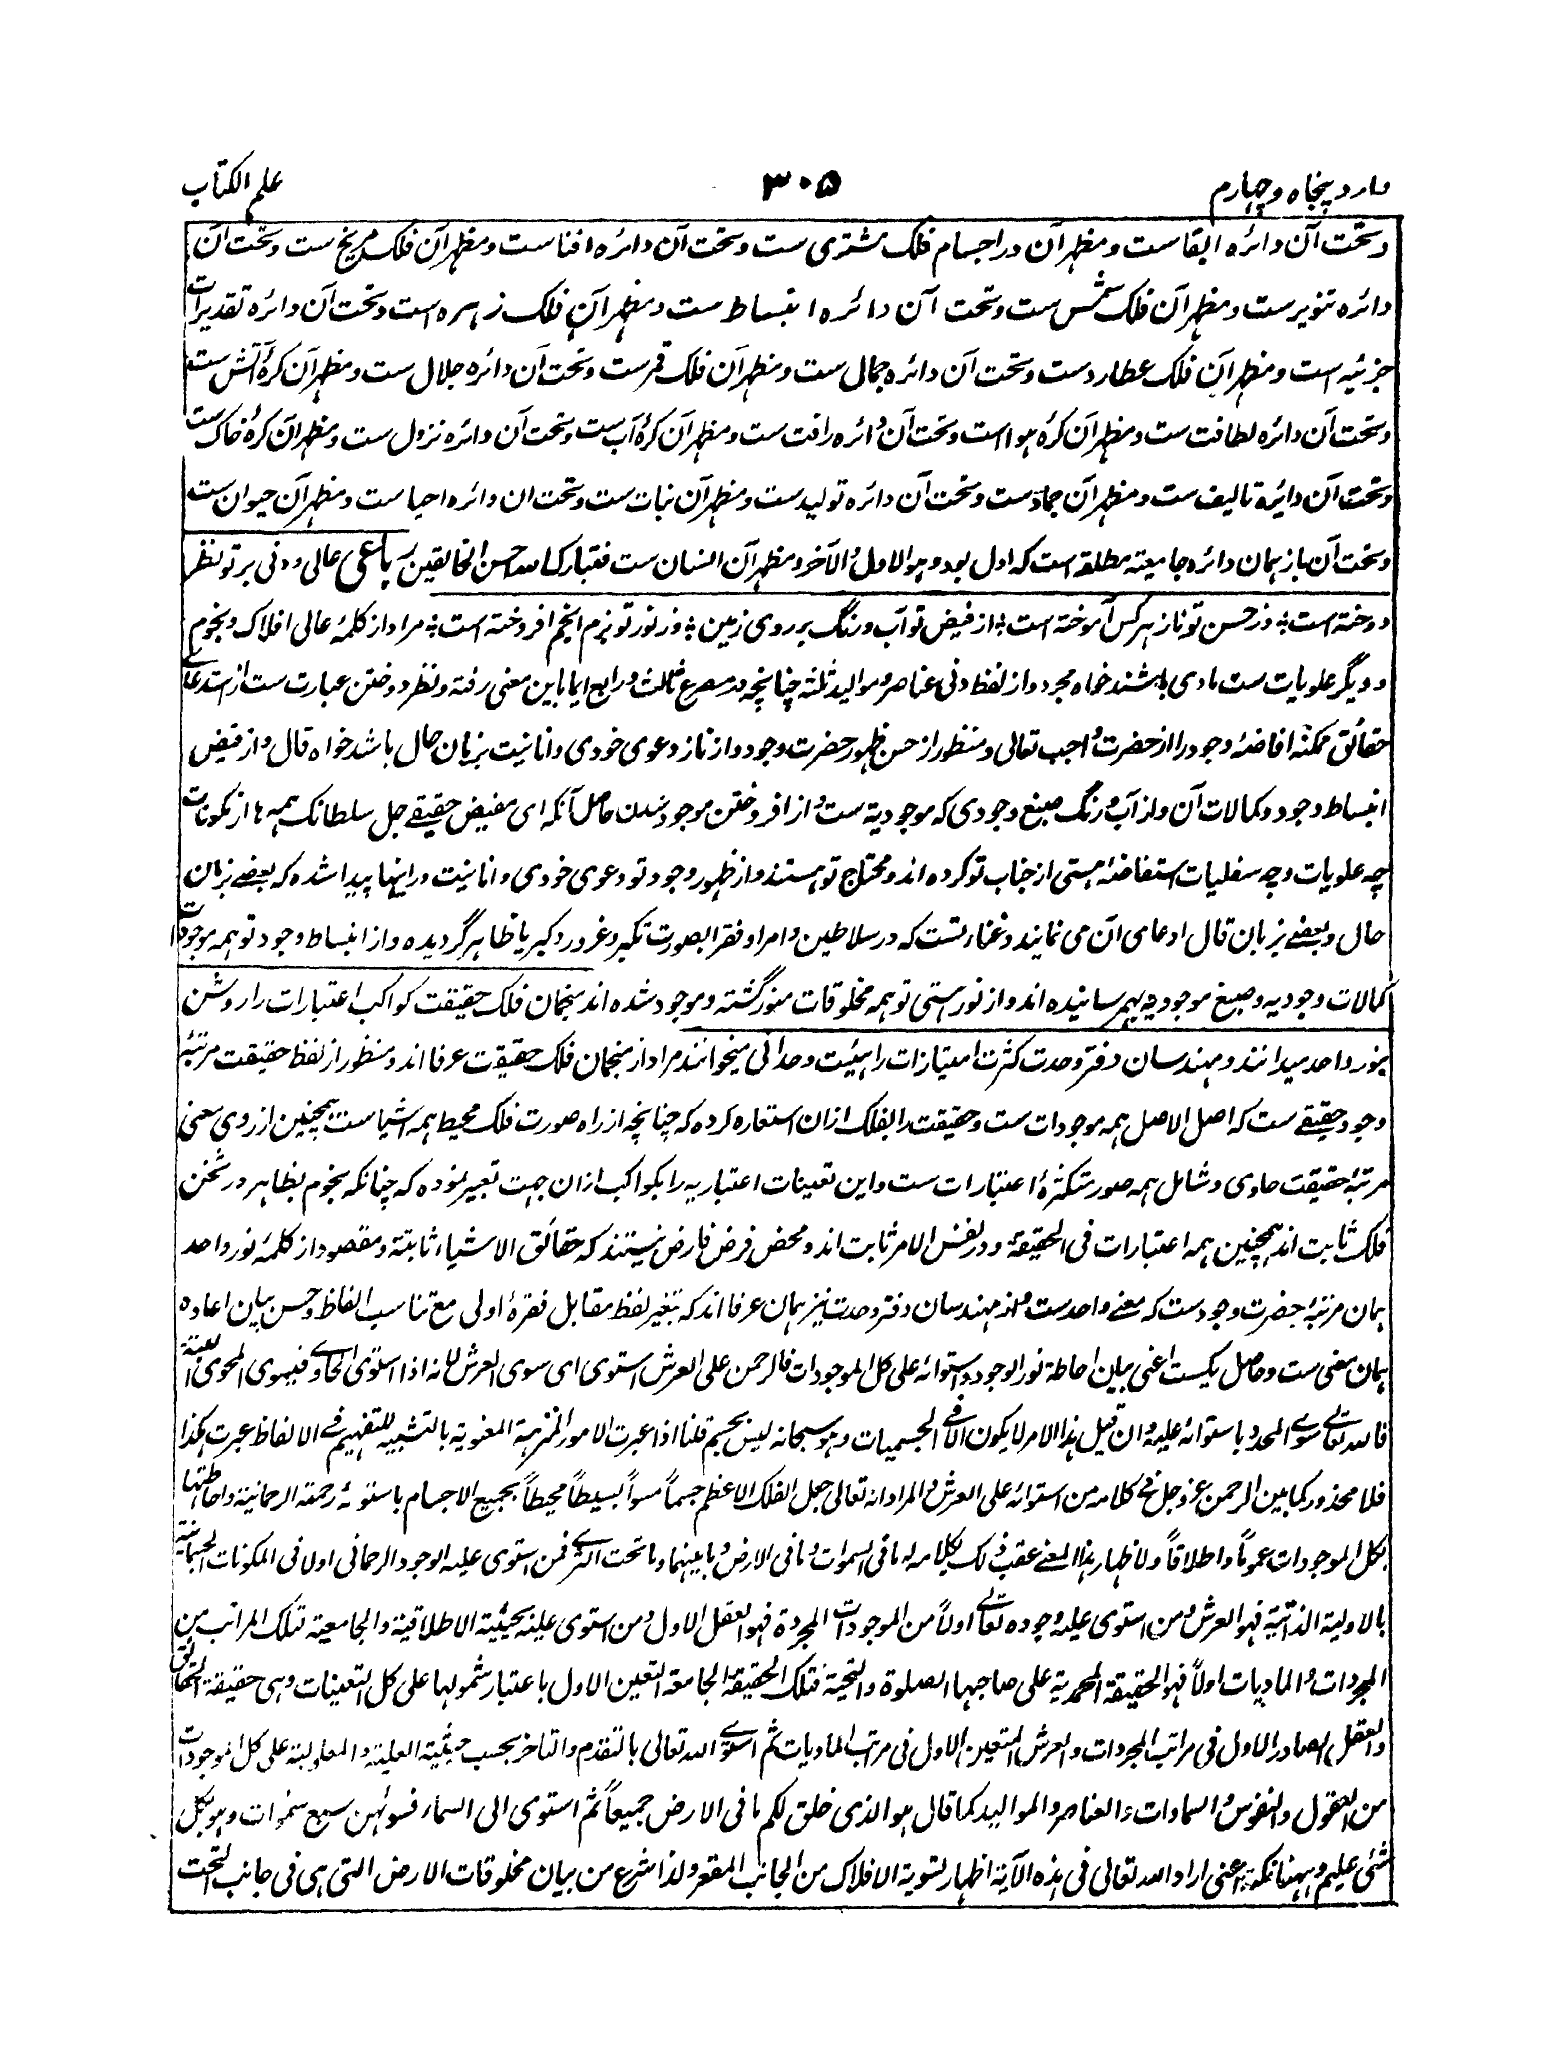 وارد پنجاه و چهارم ۳۰۵ علم الکتاب
و تحت آن دائره ابقاست و مظهر آن در اجسام فلک مشتری ست و تحت آن دائره افناست و مظهر آن فلک مریخ ست و تحت آن
دائره تنویرست و مظهر آن فلک شمس ست و تحت آن دائره انبساط ست و مظهر آن فلک زهره است و تحت آن دائره تقدیرات
جزئیه است و مظهر آن فلک عطاردست و تحت آن دائره جمال ست و مظهر آن فلک قمرست و تحت آن دائره جلال ست و مظهر آن کرهٔ آتش ست
و تحت آن دائره لطافت ست و مظهر آن کرهٔ هوا است و تحت آن دائره رافت ست و مظهر آن کرهٔ آب ست و تحت آن دائره نزول ست و مظهر آن کرهٔ خاک ست
و تحت آن دایرهٔ تالیف ست و مظهر آن جمادست و تحت آن دائره تولیدست و مظهر آن نبات ست و تحت ان دائره احیاست و مظهر آن حیوان ست
و تحت آن باز همان دائره جامعیته مطلقه است که اول بود و هو الاول و الآخر و مظهر آن انسان ست فتبارک الله احسن الخالقین رباعی عالی و دنی بر تو نظر
دوخته است * وز حسن تو ناز هر کس آموخته است * از فیض تو آب و رنگ بر روی زمین * وز نور تو بزم انجم افروخته است * مراد از کلمهٔ عالی افلاک و نجوم
و دیگر علویات ست مادی باشند خواه مجرد و از لفظ دنی عناصر و موالید ثلثه چنانچه در مصرع ثالث و رابع ایما باین معنی رفته و نظر دوختن عبارت ست از استدعای
حقائق ممکنه افاضهٔ وجود را از حضرت واجب تعالی و منظور از حسن ظهور حضرت وجود و از ناز دعوی خودی و انانیت بزبان حال باشد خواه قال و از فیض
انبساط وجود و کمالات آن و از آب و رنگ صبغ وجودی که موجودیة ست و از افروختن موجود شدن حاصل آنکه ای مفیض حقیقے جل سلطانک همه ها از مکونات
چه علویات و چه سفلیات استفاضهٔ هستی از جناب تو کرده اند و محتاج تو هستند و از ظهور وجود تو دعوی خودی و انانیت در اینها پیدا شده که بعضے بزبان
حال و بعضے بزبان قال ادعای آن می نمایند و غناء تست که در سلاطین و امرا و فقرا بصورت تکبر و غرور و کبریا ظاهر گردیده و از انبساط وجود تو همه موجودات
کمالات وجودیه و صبغ موجودیه بهم رسانیده اند و از نور هستی تو همه مخلوقات منور گشته و موجود شده اند منجمان فلک حقیقت کواکب اعتبارات را روشن
بنور واحد میدانند و مهندسان دفتر وحدت کثرت امتیازات را بهیئت وحدانی میخوانند مراد از منجمان فلک حقیقت عرفا اند و منظور از لفظ حقیقت مرتبهٔ
وجود حقیقے ست که اصل الاصل همه موجودات ست و حقیقت را بفلک ازان استعاره کرده که چنانچه از راه صورت فلک محیط همه اشیاست همچنین از روی معنی
مرتبهٔ حقیقت حاوی و شامل همه صور متکثرهٔ اعتبارات ست و این تعینات اعتباریه را بکواکب ازان جهت تعبیر نموده که چنانکه نجوم بظاهر در ثخن
فلک ثابت اند همچنین همه اعتبارات فی الحقیقة و در نفس الامر ثابت اند و محض فرض فارض نیستند که حقائق الاشیاء ثابتة و مقصود از کلمهٔ نور واحد
همان مرتبهٔ حضرت وجودست که معنے واحدست و از مهندسان دفتر وحدت نیز همان عرفا اند که بتغیر لفظ مقابل فقرهٔ اولی مع تناسب الفاظ و حسن بیان اعاده
همان معنی ست و حاصل یکیست اعنی بیان احاطة نور الوجود و استوائه علی کل الموجودات فالرحمن علی العرش استوی ای سوی العرش لانه اذا استوی الحاوے فیسوی المحوی البتة
فالله تعالی سوے المحدد باستوائه علیه و ان قیل هذا الامر لا یکون الا فے الجسمیات و هو سبحانه لیس بجسم قلنا اذا عبرت الامور المنزهة المعنویة بالتشبیه للتفهیم فے الالفاظ عبرت هکذا
فلا محذور کما بین الرحمن عز و جل فے کلامه من استوائه علی العرش و المراد انه تعالی جعل الفلک الاعظم جسماً مسواً بسیطاً محیطاً بجمیع الاجسام باستواءِ رحمته الرحمانیة و احاطتها
بکل الموجودات عموماً و اطلاقاً و لاظهار هذا المعنے عقب ذلک بکلامه له ما فی السموات و ما فی الارض و ما بینهما و ما تحت الثرے فمن استوی علیه الوجود الرحمانی اولا فی المکونات الجسمانیة
بالاولیة الذاتیة فهو العرش و من استوی علیه وجوده تعالی اولاً من الموجودات المجردة فهو العقل الاول و من استوی علیه بحیثیة الاطلاقیة و الجامعیة تلک المراتب من
المجردات و المادیات اولاً فهو الحقیقة المحمدیة علی صاحبها الصلوة و التحیة فتلک الحقیقة الجامعة التعین الاول باعتبار شمولها علی کل التعینات و هی حقیقة الحقائق
و العقل الصادر الاول فی مراتب المجردات و العرش المتعین الاول فی مرتب المادیات ثم استوے الله تعالی بالتقدم و التاخر بحسب حیثیة العلیة و المعلولیة علی کل الموجودات
من العقول و النفوس و السماوات و العناصر و الموالید کما قال هو الذی خلق لکم ما فی الارض جمیعاً ثم استوی الی السماء فسوٰهن سبع سموات و هو بکل
شئی علیم و ههنا نکتة اعنی اراد الله تعالی فی هذه الآیة اظهار تسویة الافلاک من الجانب المقعر و لذا شرع من بیان مخلوقات الارض التی هی فی جانب التحت